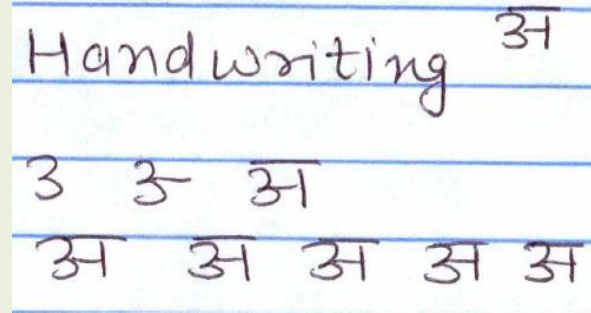 Handwriting अ
3 3- अ
अ अ अ अ अ